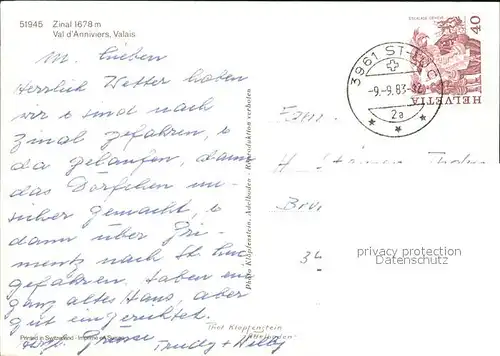 51945 Zinal 1678 m
Val d'Anniviers, Valais
M. Lieben
Herrlich Wetter haben
wir & sind nach
Zinal gefahren, &
da gelaufen, dann
das Dörfchen un-
sicher gemacht, &
dann über Gri-
mentz nach St. Luc
gefahren, haben ein
ganz altes Haus, aber
gut eingerichtet.
Grüsse
Trudy + Willy
Printed in Switzerland
Photo Klopfenstein, Adelboden - Reproduktion verboten
Phot Klopfenstein
Adelboden
3961 ST-LUC
-9.-9.83-
2a
HELVETIA
40
Fam.
H
34
privacy protection
Datenschutz